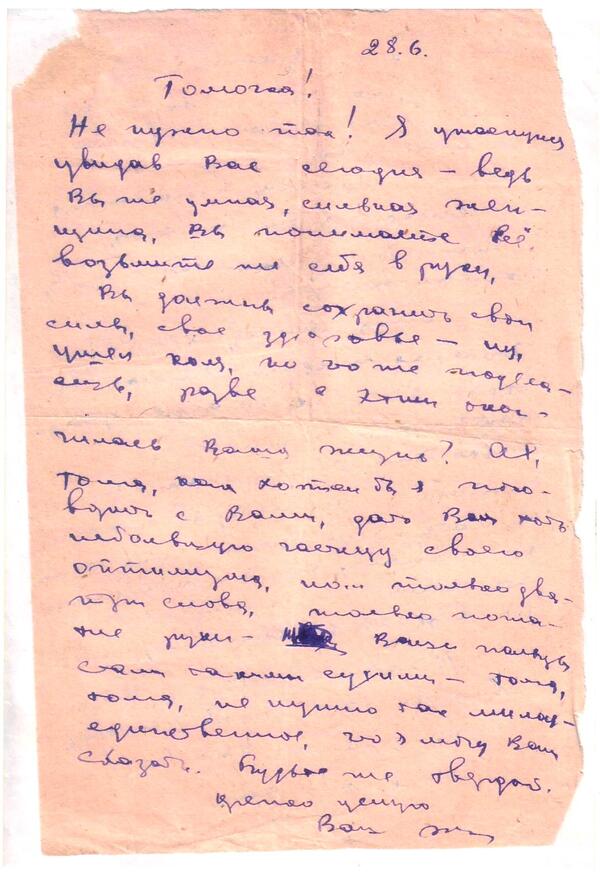 28.6.
Томочка!
Не нужно так! Я ужаснулся
увидав Вас сегодня — ведь
Вы же умная, сильная жен-
щина, Вы понимаете всё.
возьмите же себя в руки,
Вы должны сохранить свои
силы, свое здоровье — ну,
ушел Коля, но что же подела-
ешь, разве с этим окон-
чилась Ваша жизнь? Ах,
Тома, как хотел бы я пого-
ворить с Вами, дать Вам хоть
небольшую частицу своего
оптимизма, но только два-
три слова, только пожа-
тие руки — Ваши пальцы
стали такими сухими — Тома,
Тома, не нужно так милая —
единственное, что я могу Вам
сказать. Будьте же твердой.
крепко целую
Ваш